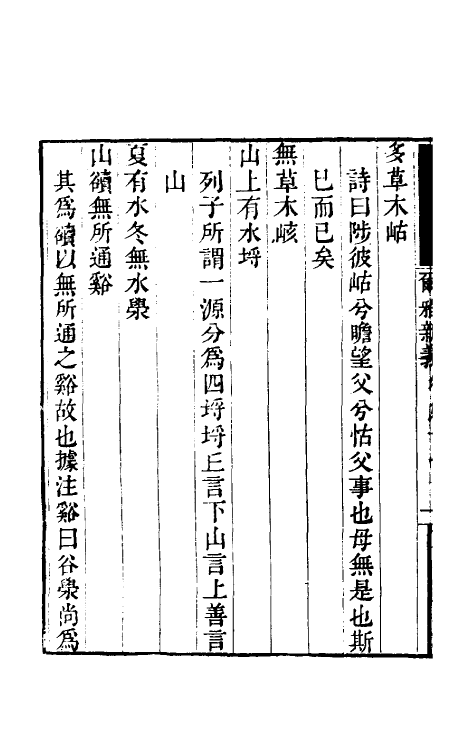 爾雅新義
多草木岵
詩曰陟彼岵兮瞻望父兮怙父事也母無是也斯
已而已矣
無草木峐
山上有水埒
列子所謂一源分爲四埒埒丘言下山言上善言
山
夏有水冬無水澩
山𧮾無所通谿
其爲𧮾以無所通之谿故也據注谿曰谷澩尚爲